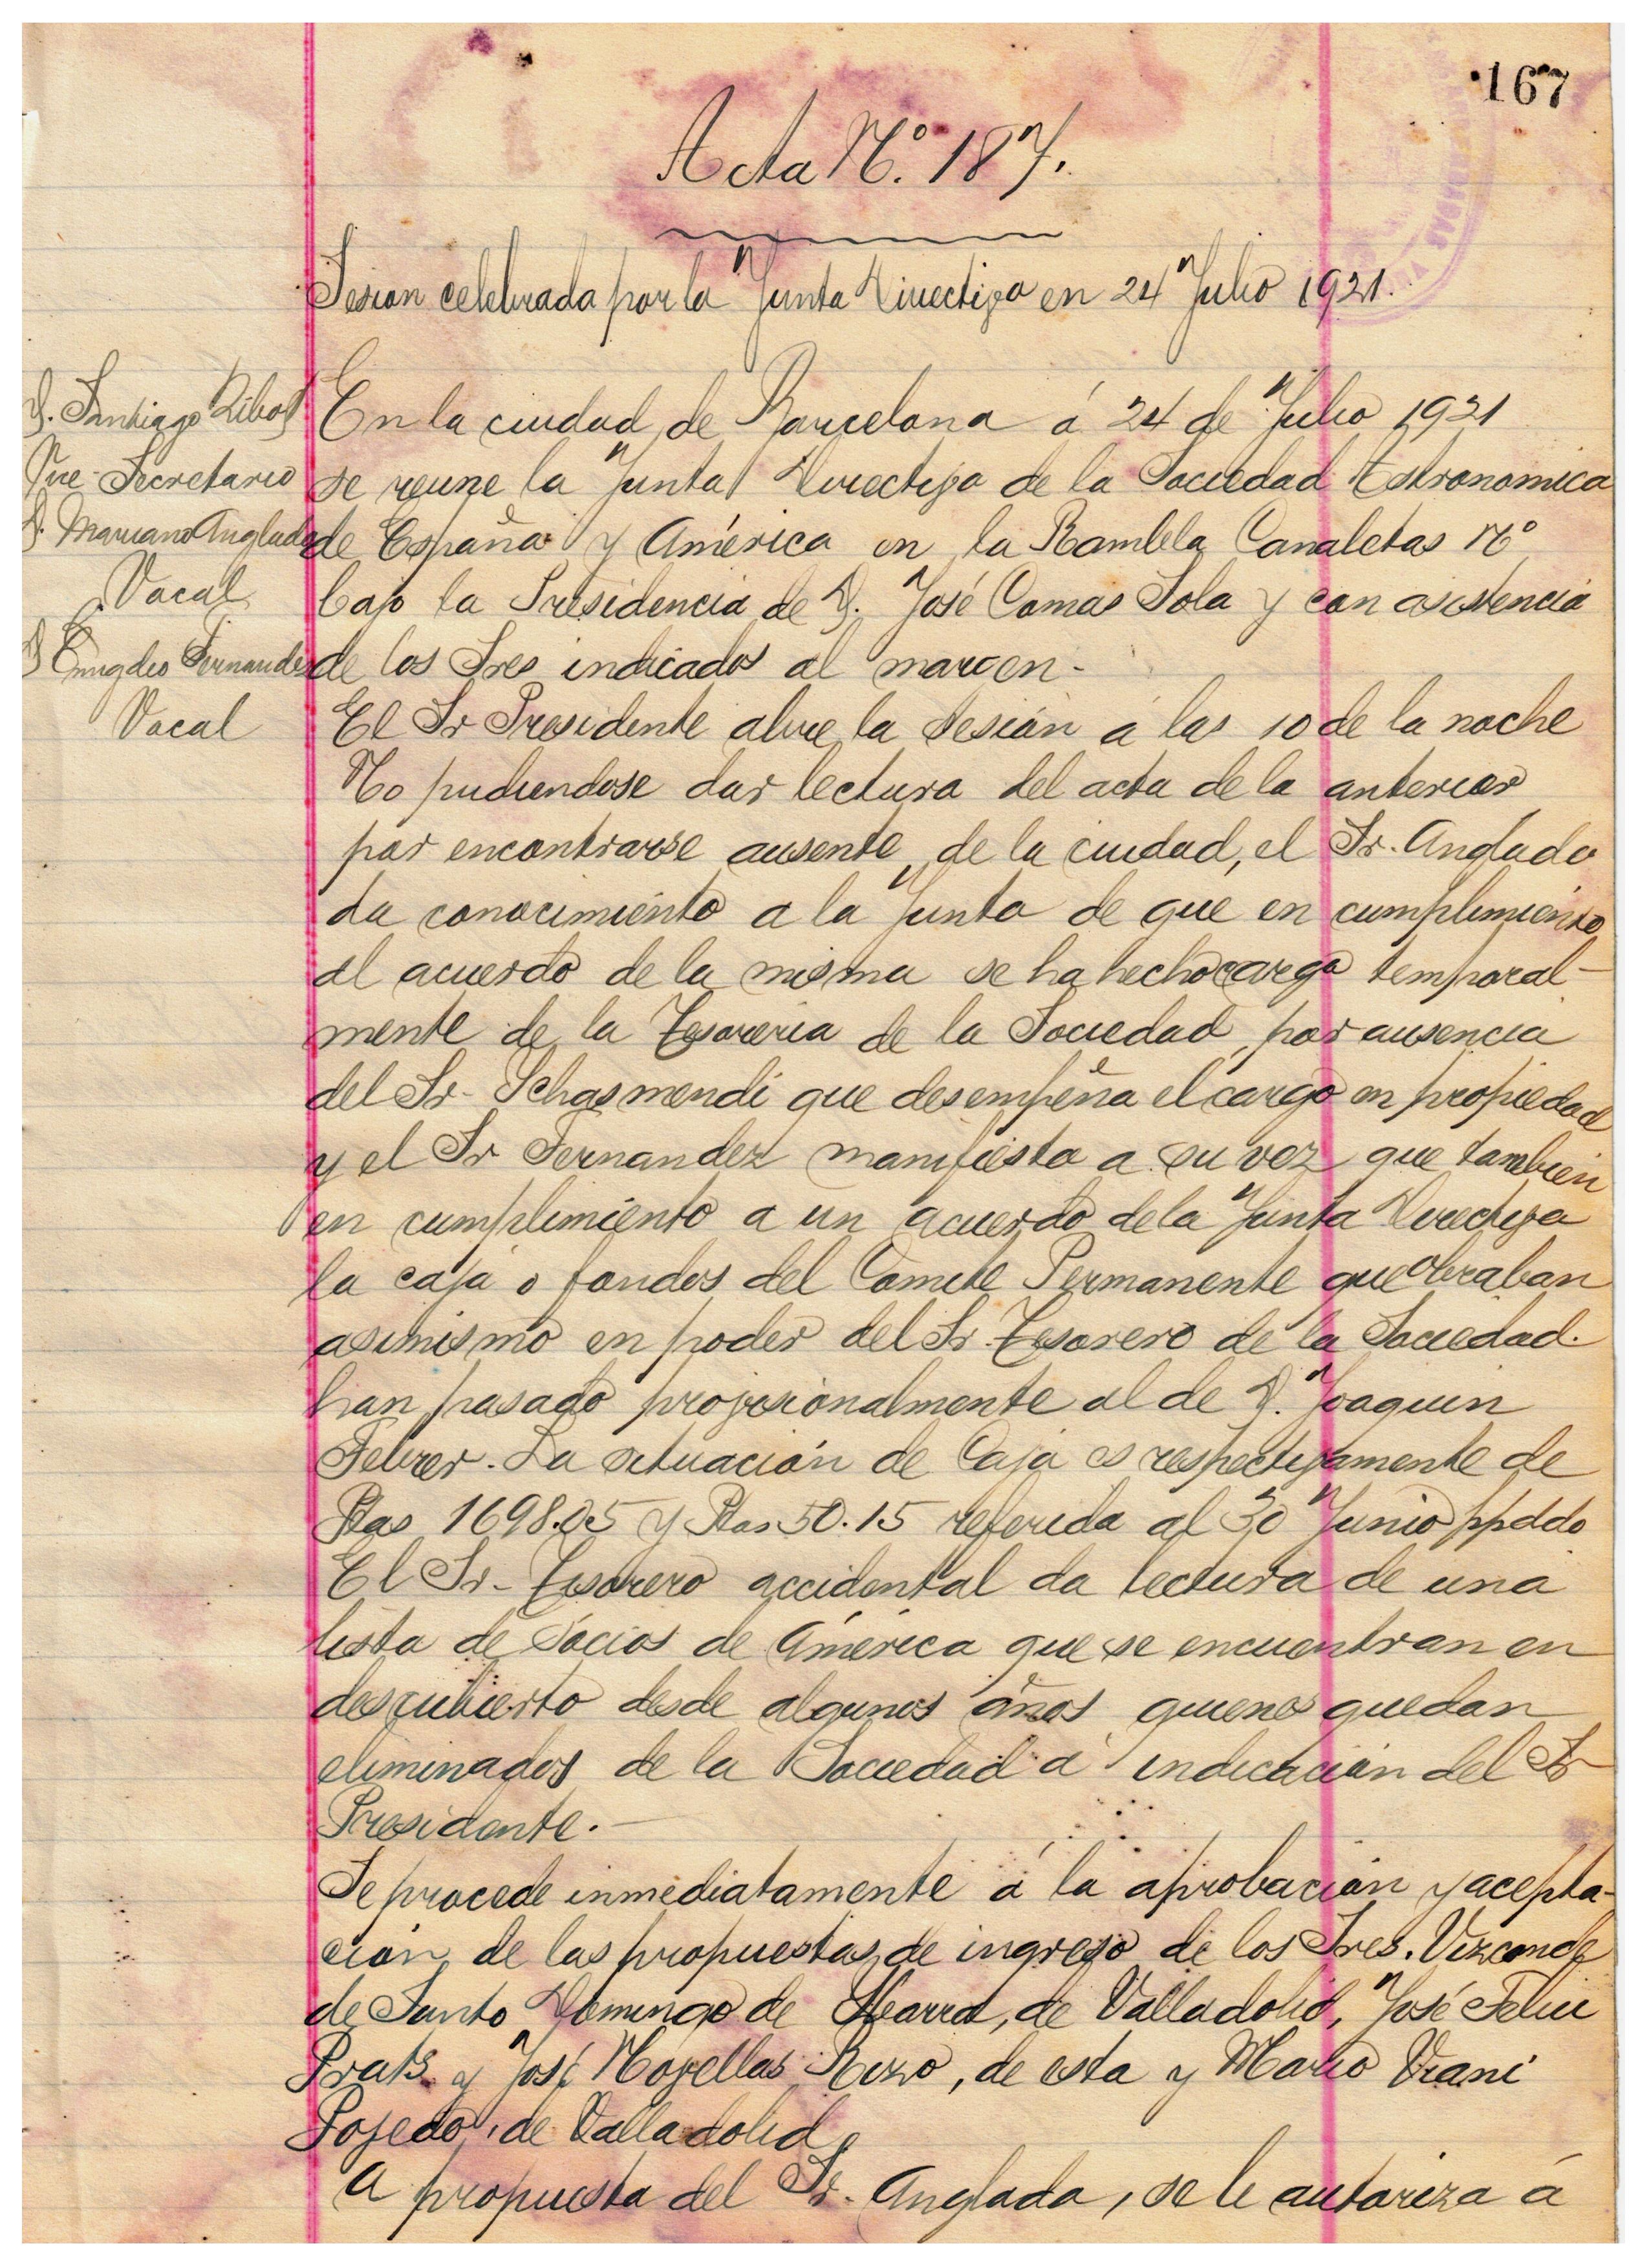 167
Acta Nº. 187.
Sesion celebrada por la Junta Directiva en 24 Julio 1921.
D. Santiago Ribot
Vice-Secretario
D. Mariano Anglada
Vocal
D Emigdio Fernandez
Vocal
En la ciudad de Barcelona á 24 de Julio 1921
se reune la Junta Directiva de la Sociedad Astronomica
de España y América en la Rambla Canaletas Nº
bajo la Presidencia de D. José Comas Sola y con asistencia
de los Sres indicados al margen-
El Sr Presidente abre la sesión á las 10 de la noche
No pudiendose dar lectura del acta de la anterior
por encontrarse ausente de la ciudad, el Sr. Anglada
da conocimiento a la Junta de que en cumplimiento
al acuerdo de la misma se ha hecho cargo temporal-
mente de la Tesoreria de la Sociedad, por ausencia
del Sr- que desempeña el cargo en propiedad
y el Sr Fernandez manifiesta a su vez que tambien
en cumplimiento a un acuerdo de la Junta Directiva
la caja o fondos del Comite Permanente que obraban
asimismo en poder del Sr. Tesorero de la Sociedad.
han pasado provisionalmente al de D. Joaquin
Febrer. La situación de Caja es respectivamente de
Ptas 1698.05 y Ptas 50.15 referida al 30 Junio ppddo
El Sr- Tesorero accidental da lectura de una
lista de Socios de América que se encuentran en
descubierto desde algunos años quienes quedan
eliminados de la Sociedad á indicación del Sr
Presidente.-
Se procede inmediatamente á la aprobación y acepta-
ción de las propuestas de ingreso de los Sres. Vizconde
de Santo Domingo de Ibarra, de Valladolid, José Feliu
Prats y José Novellas Rizo, de esta y Mario Viani
de Valladolid
A propuesta del Sr. Anglada, se le autoriza á